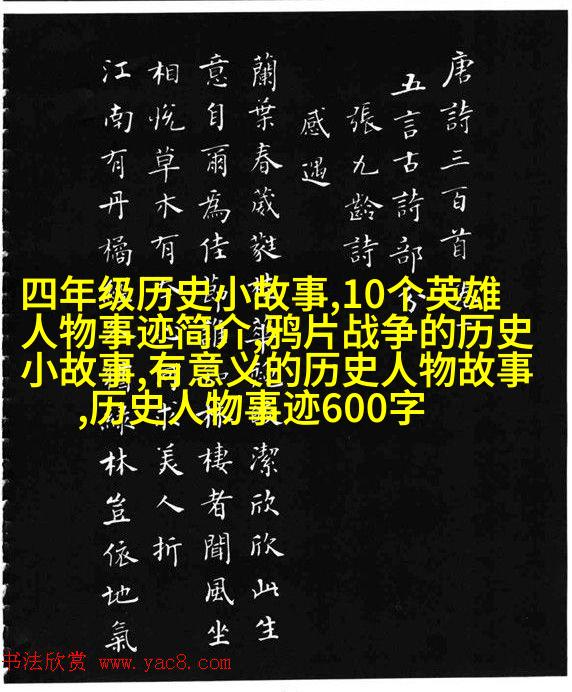 四年级历史小故事,10个英雄
人物事迹简介,鸦片战争的历史
小故事,有意义的历史人物故事
,历史人物事迹600字
唐詩三百首
五言古詩部分
張九齡詩
感遇
蘭葉春葳蕤桂潔欣欣此生
意自爾為佳節誰林棲者聞風坐
相悅草木有求美人折
江南有丹橘綠林豈依地氣
书法欣赏 www.yac8.com